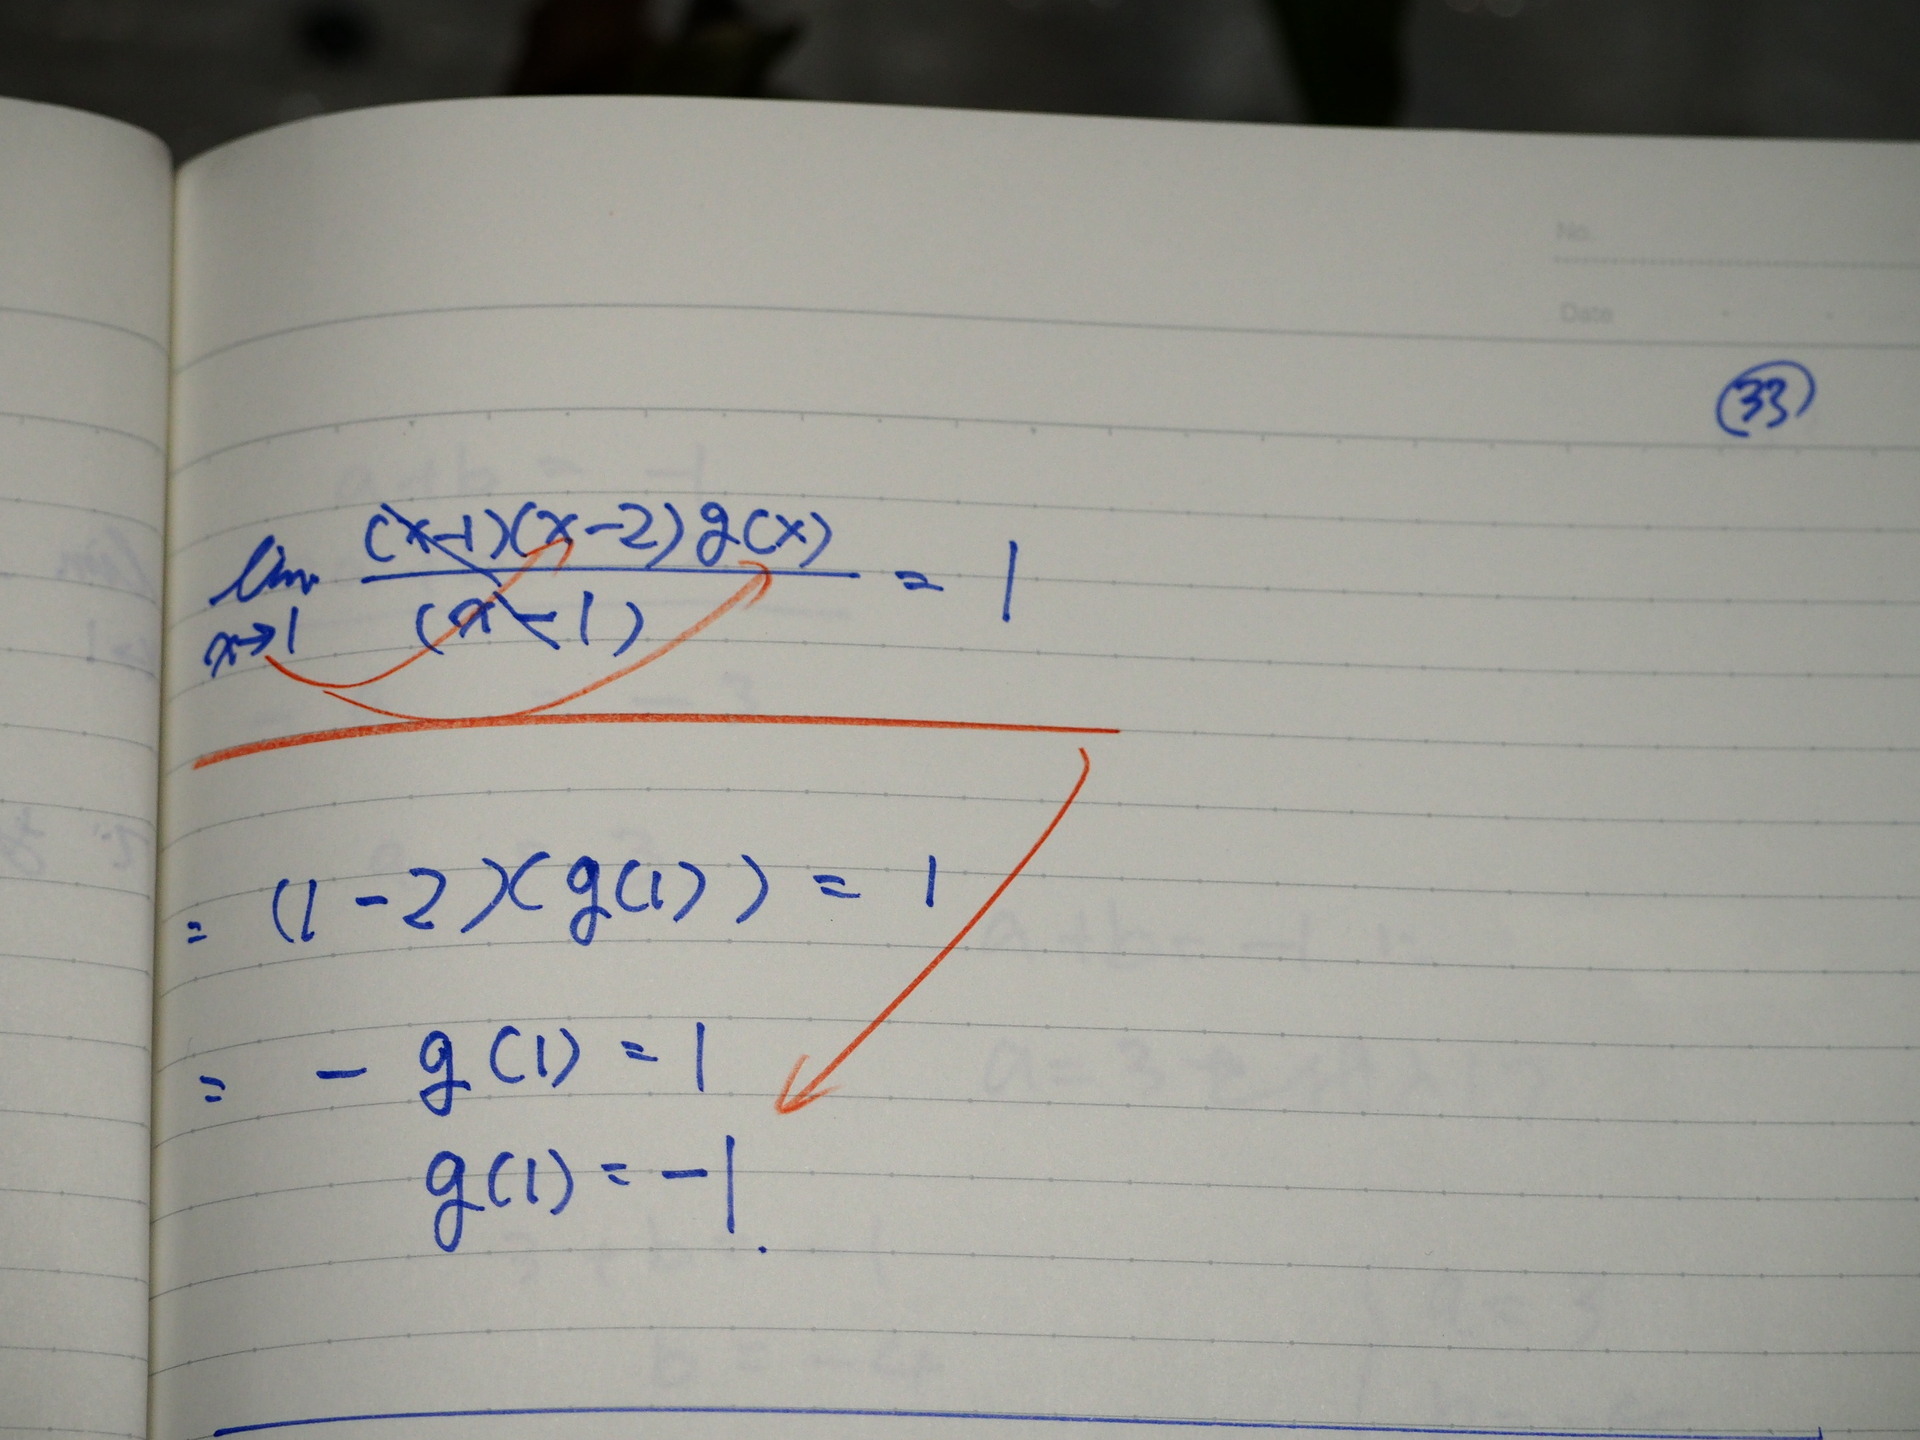 No.
Date
(33)
lim x→1 (x-1)(x-2)g(x) / (x-1) = 1
= (1-2)(g(1)) = 1
= -g(1) = 1
g(1) = -1.